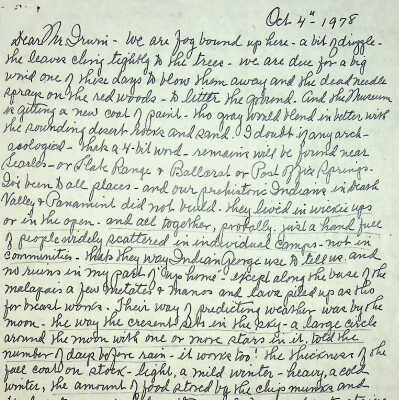 Oct 4th - 1978
Dear Mr. Irwin - We are fog bound up here - a bit of drizzle -
the leaves cling tightly to the trees - we are due for a big
wind one of these days to blow them away and the dead needle
sprays on the red woods - to litter the ground. And the Museum
is getting a new coat of paint - the gray would blend in better with
the sounding desert rocks and sand. I doubt if any arch-
aeological - thats a 4-bit word - remains will be found near
Searles - or Slate Range & Ballarat or Post of fix Springs.
I've been to all places - and our prehistoric Indians in Death
Valley & Panamint did not build - they lived in wickie ups
or in the open - and all together, probally, just a hand full
of people widely scattered in individual camps - not in
communities - thats they way Indian George use to tell us. and
no ruins in my part of "my home" - except along the base of the
malapais a few metates & manos and lava piled up as tho
for breast works. Their way of predicting weather was by the
moon - the way the cresent sets in the sky - a large circle
around the moon with one or more stars in it, told the
number of days before rain - it works too! the thickness of the
fall coat on stock - light, a mild winter - heavy, a cold
winter, the amount of food stored by the chip munks and